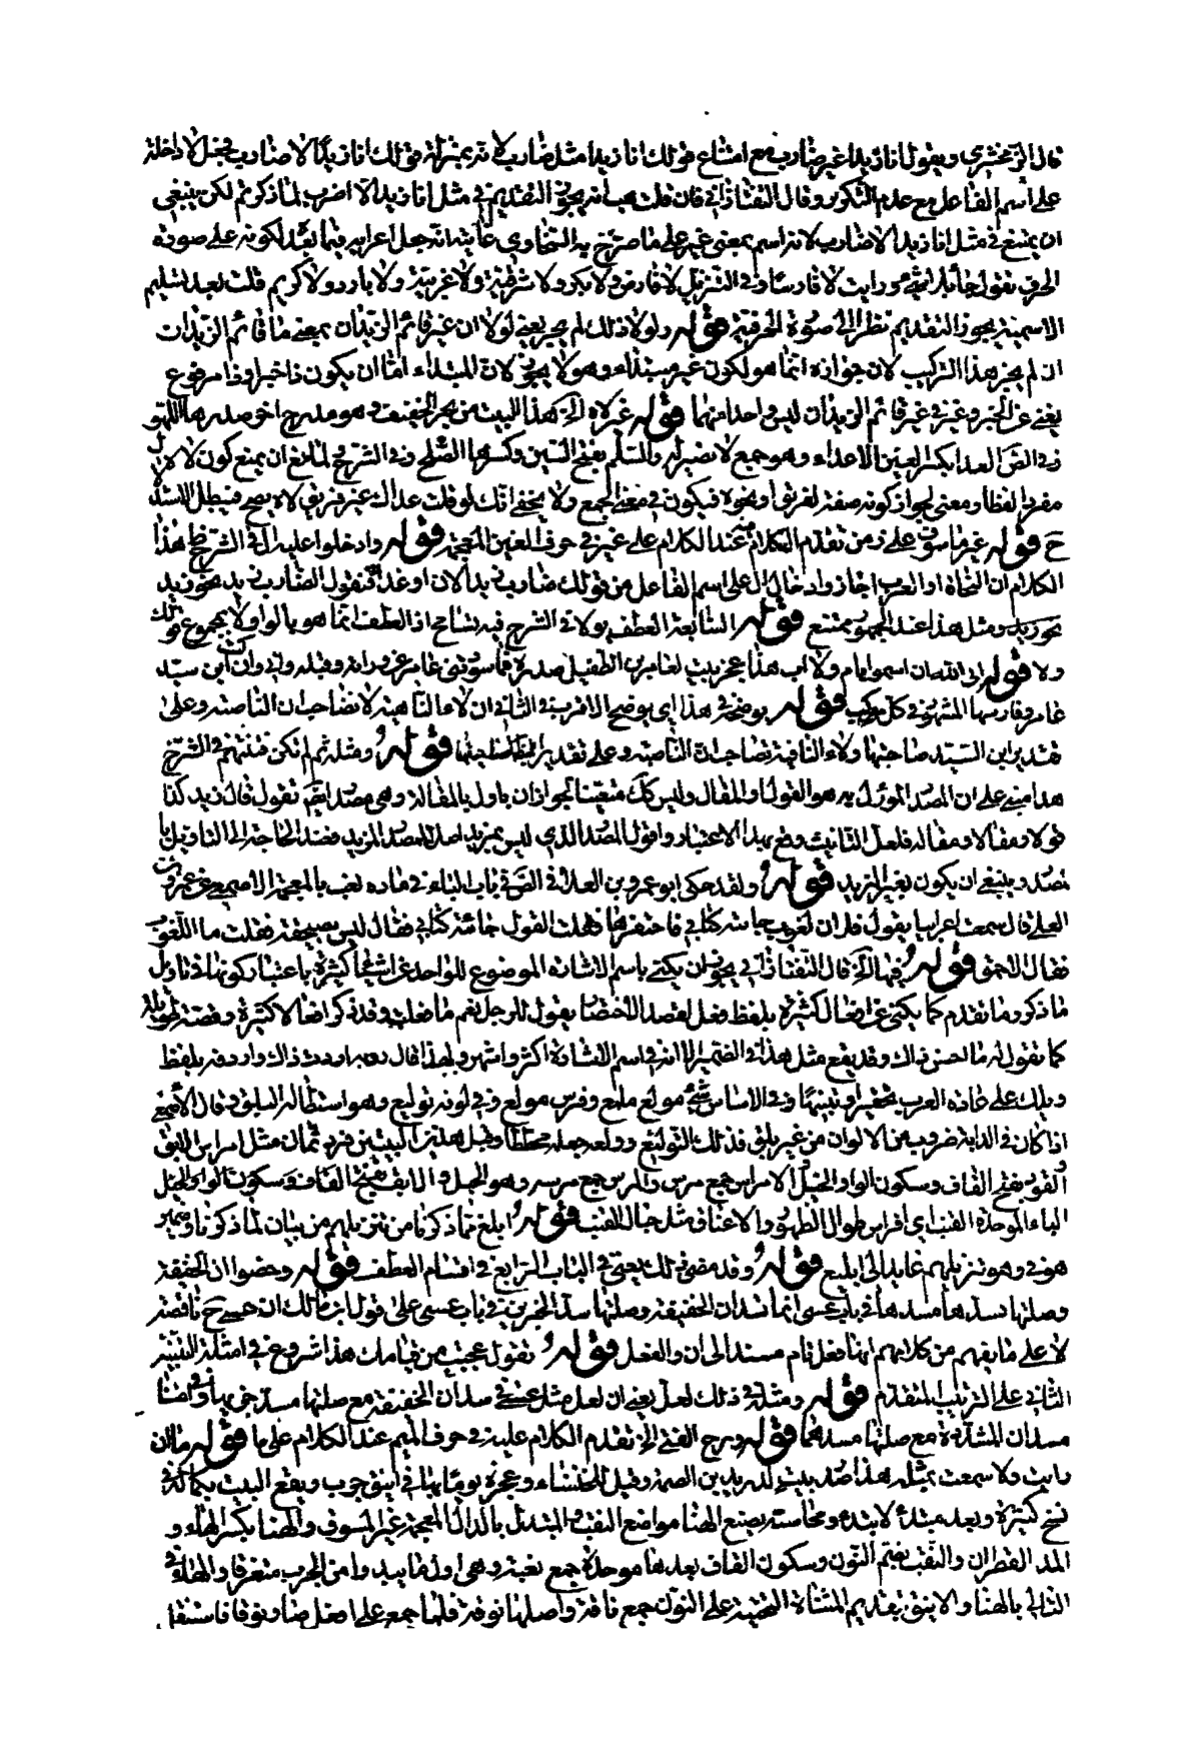 قال الزمخشري ويقول انا زيدا غير ضارب مع امتناع قولك انا زيدا مثل ضارب لانه بمنزلة قولك انا زيدا لا ضارب فجعل لا داخلة
على اسم الفاعل مع عدم التكرير وقال التفتازاني فان قلت هب انه يجوز التقديم في مثل انا زيدا لا اضرب لما ذكرتم لكن ينبغي
ان يمتنع في مثل انا زيدا لا ضارب لانه اسم بمعنى غير على ما صرح به السخاوي غايته انه جعل اعرابه فيما بعد لكونه على صورة
الحرف تقول جاء بلا شيء ورايت لا قارسا وفي التنزيل لا فارض ولا بكر ولا شرقية ولا غربية ولا بارد ولا كريم قلت بعد تسليم
الاسمية يجوز التقديم نظرا الى صورة الحرفية قوله ولولا ذلك لم يجز يعني لولا ان غير قائم الزيدان بمعنى ما قائم الزيدان
ان لم يجز هذا التركيب لان جوازه انما هو لكون غير مبتداء وهو لا يجوز لان المبتداء اما ان يكون ذا خبر او ذا مرفوع
يغني عن الخبر وغير في غير قائم الزيدان ليس واحدا منهما قوله غير لاه الخ هذا البيت من بحر الخفيف وهو مدرج اخر صدرها اللهو
في الص العدا بكسر العين الاعداء وهو جمع لا نظير له والسلم بفتح السين وكسرها الصلح وفي الشرح لمانع ان يمنع كون لاه الاول
مفردا لفظا ومعنى لجواز كونه صفة لفريق او نحوه فيكون في معنى الجمع ولا يخفى انك لو قلت عداك غير فريق لاه يصح فيبطل الاستدلال
ح قوله غير ماسوف على زمن تقدم الكلام عند الكلام على غير في حرف الغين المعجمة قوله وادخلوا عليه ال في الشرح ظاهر هذا
الكلام ان النحاة او العرب اجاز وادخال ال على اسم الفاعل من قولك ضارب زيد الان او غدا فتقول الضارب زيد
ومثل هذا عند الجمهور ممتنع قوله السابعة العطف بولا في الشرح فيه تسامح اذ العطف انما هو بالواو لا بمجموع قولك
ولا قوله ابى الله ان اسمو بام ولا اب هذا عجز بيت لعامر بن الطفيل صدره فما سودتني عامر عن وراثة وقبله واني وان كنت ابن سيد
عامر وفارسها المشهور في كل موكب قوله يوضحه هذا اي يوضح الاقربية الثاني ان لاء الناهية لا تصاحب ان الناصبة وعلى
تقدير ابن السيد صاحبتها ولاء النافية تصاحب ان الناصبة وعلى تقدير صاحبتها قوله ومثله ثم لم تكن فتنتهم في الشرح
هذا مبني على ان المصدر المؤول به هو القول او المقال وليس ذلك متعينا لجواز ان ياول بالمقالة وهي مصدر ايضا تقول قال زيد كذا
قولا ومقالا ومقالة فلعل التانيث وقع بهذا الاعتبار واقول المصدر الذي ليس بمزيد اصل للمصدر المزيد فعند الحاجة الى التاويل
بمصدر ينبغي ان يكون بغير المزيد قوله ولقد حكى ابو عمرو بن العلاء في الصحاح باب الباء في مادة لغب بالمعجمة الاصمعي عن عمرو بن
العلاء قال سمعت اعرابيا يقول فلان لغوب جاءته كتابي فاحتقرها فقلت اتقول جاءته كتابي فقال ليس بصحيفة فقلت ما اللغوب
فقال الاحمق قوله فيها الخ قال التفتازاني يجوز ان يكنى باسم الاشارة الموضوع للواحد عن اشياء كثيرة باعتبار كونها في تاويل
ما ذكر وما تقدم كما يكنى عن افعال كثيرة بلفظ فعل لقصد الاختصار يقول للرجل نعم ما فعلت وقد ذكر افعالا كثيرة وقصة طويلة
كما تقول له ما احسن ذلك وقد يقع مثل هذا في الضمير الا انه في اسم الاشارة اكثر واشهر ولهذا قال رؤبة اردت ذاك واردفه بلفظ
ويلك على عادة العرب تحقيرا وتنبيها وفي الاساس شيء مولع ملمع وفرس مولع وفي لونه توليع وهو استطالة البلق وقال الاصمعي
اذا كان في الدابة ضروب من الالوان من غير بلق فذلك التوليع وولعه جعله مخططا وقبل هذين البيتين قود ثمان مثل امراس الابق
القود بفتح القاف وسكون الواو الخيل الامراس جمع مرس والمرس جمع مرسة وهو الحبل والابق بفتح
الباء الموحدة القنب اي افراس طوال الظهور والاعناق مثل حبال القنب قوله ابلغ مما ذكرنا من تنزيلهم من بيان لما ذكرنا وضمير
هو في وهو تنزيلهم عايد الى ابلغ قوله وقد مضى ذلك يعني في الباب الرابع في اقسام العطف قوله وخصوا ان الخفيفة
وصلتها بسدها مسدهما في باب عسى انما تسد ان الخفيفة وصلتها مسد الجزئين في باب عسى على قول ابن مالك ان عسى ح ناقصة
لا على ما يفهم من كلامهم انها فعل تام مسند الى ان والفعل قوله تقول عجبت من قيامك هذا شروع في امثلة التنبيه
الثاني على الترتيب المتقدم قوله ومثله في ذلك لعل يعني ان لعل مثل عسى في سد ان الخفيفة مع صلتها مسد جزيها وفي امتناع
مسد ان المشددة مع صلتها مسدهما قوله ويرج الفتى الخ تقدم الكلام عليه في حرف الميم عند الكلام على ما قوله ما ان
رايت ولا سمعت بمثله هذا صدر بيت لدريد بن الصمة وقيل للخنساء وعجزه يوما هاني اينق جرب ويقع البيت بكماله في
نسخ كثيرة وبعده مبتذلا تبدو محاسنه يضع الهنا مواضع النقب المتبذل بالذال المعجمة غير المتصون والهنا بكسر الهاء و
المد القطران والنقب بضم النون وسكون القاف بعدها موحدة جمع نقبة وهي اول ما يبدو من الجرب متفرقا والهاني
الطالي بالهنا والاينق بتقديم المثناة التحتية على النون جمع ناقة واصلها نوقة فلما جمع على افعل صار نوقا فاستثقل